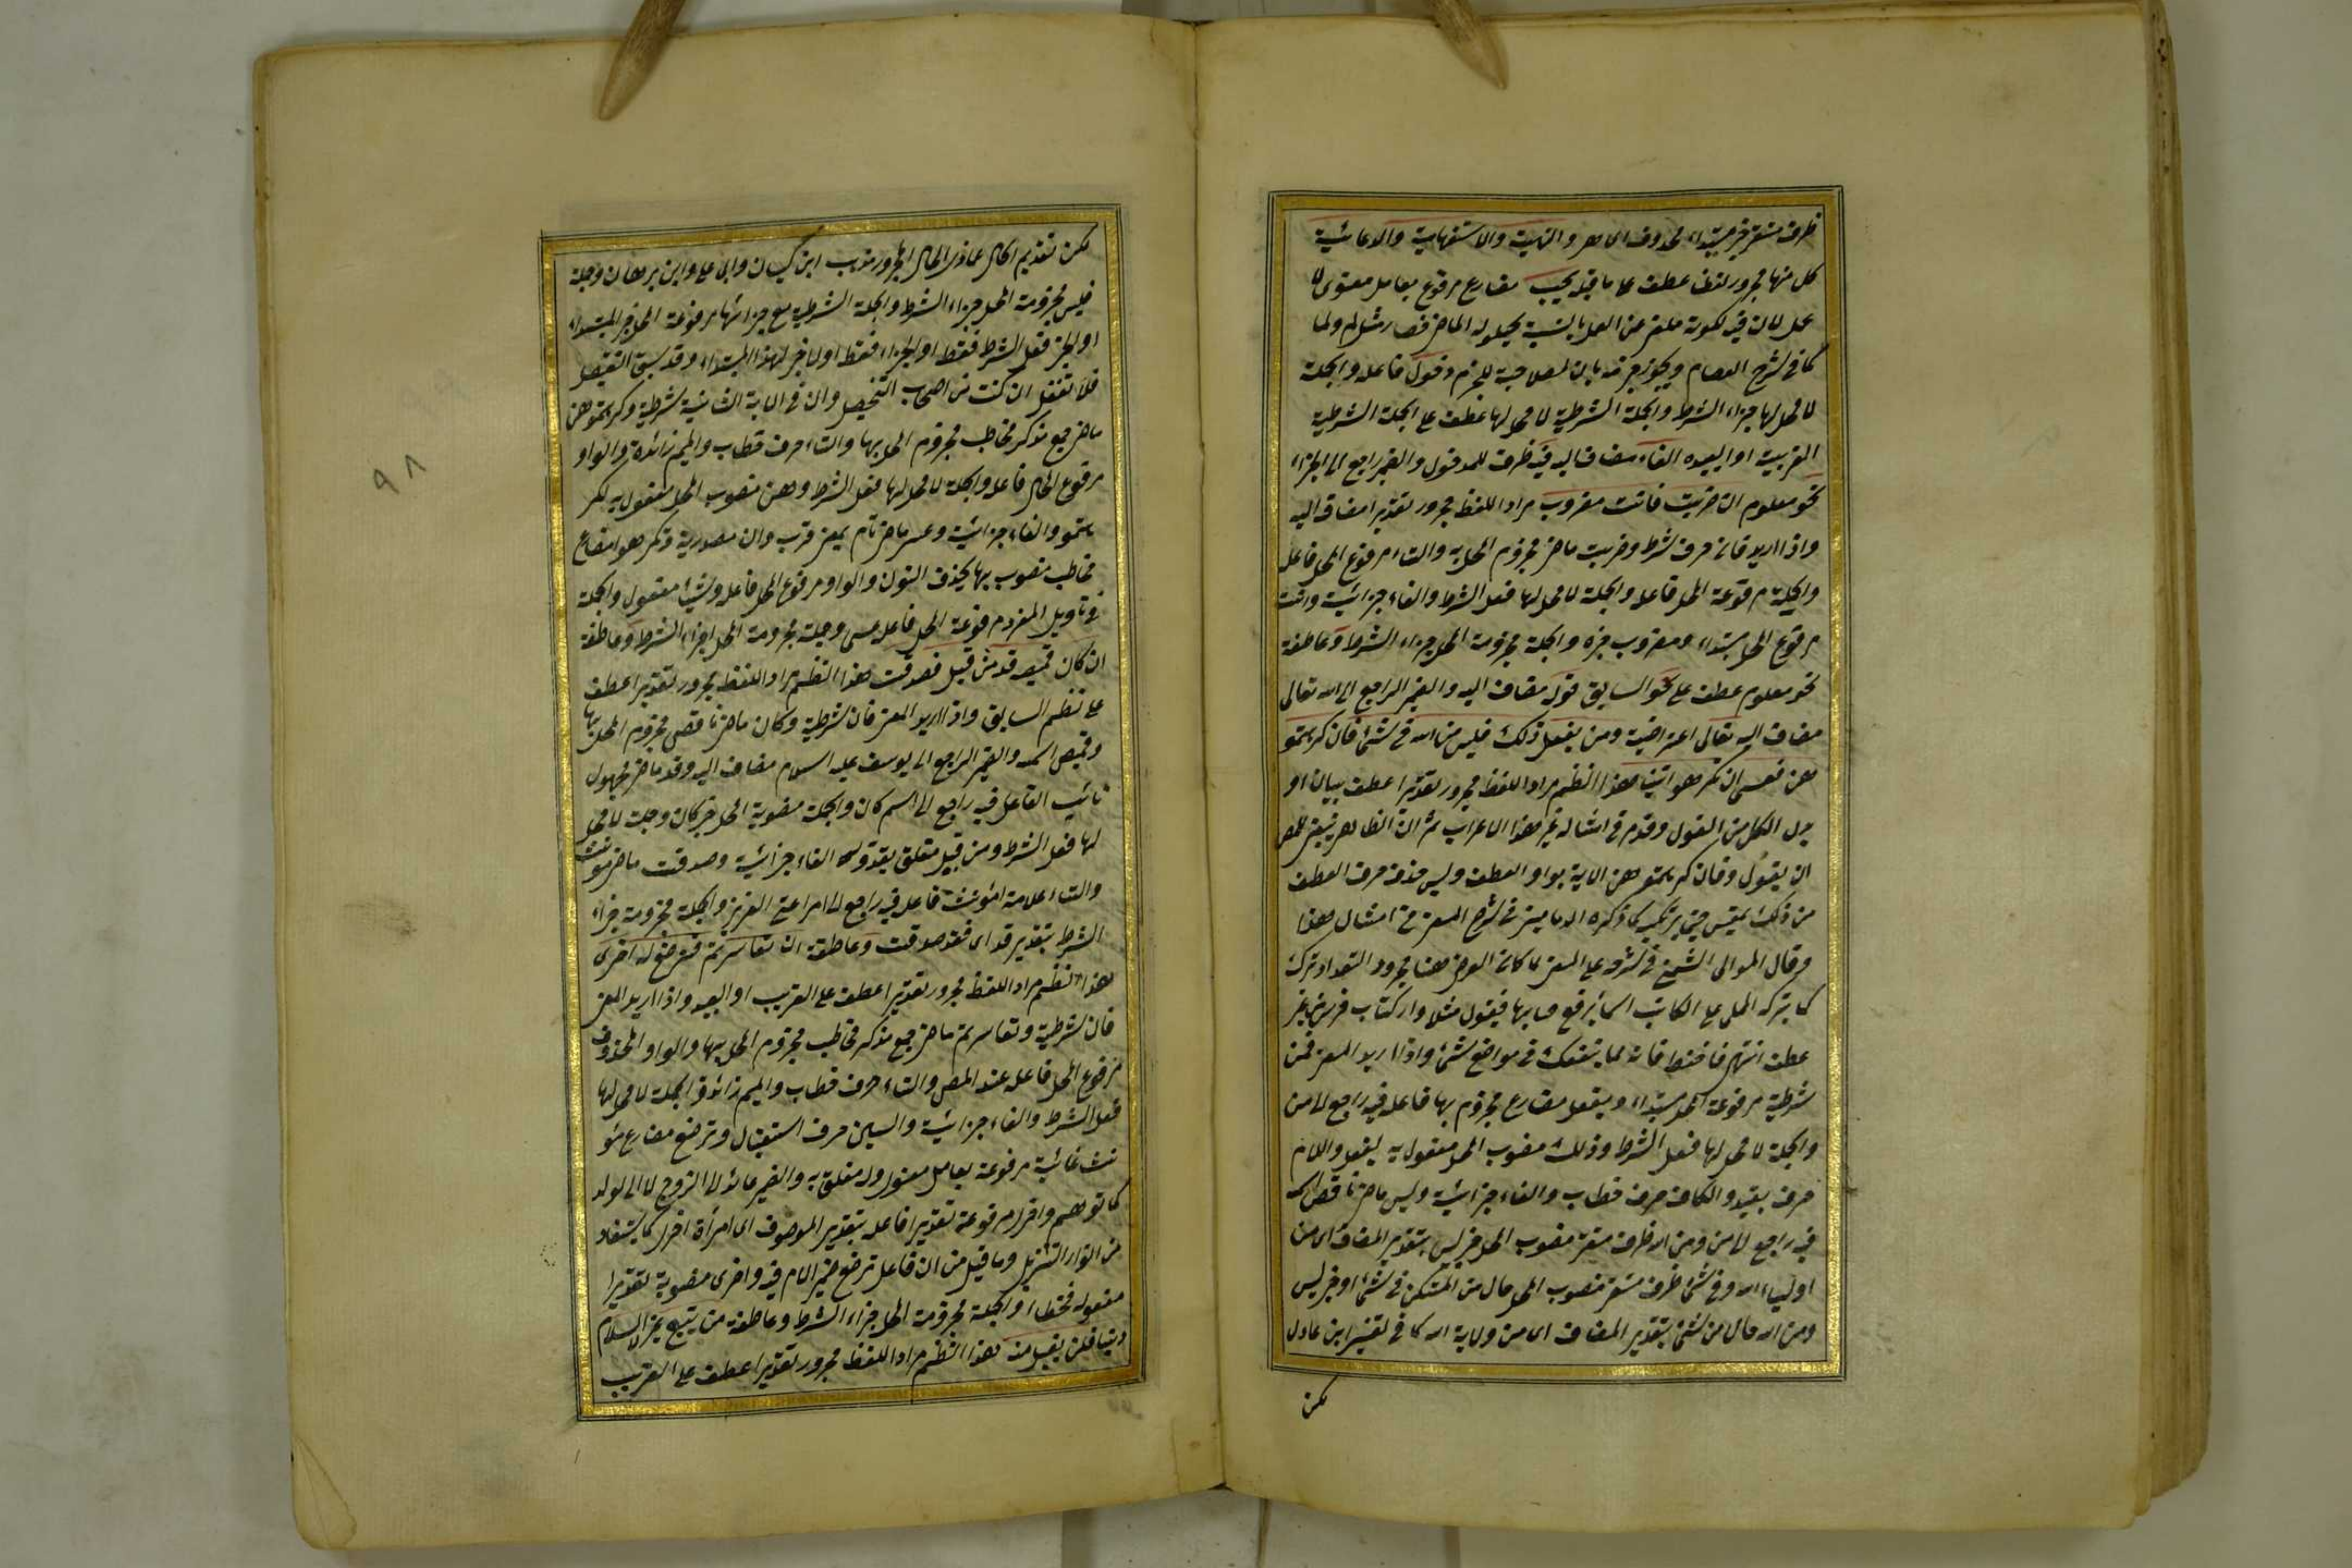 ظرف مستقر خبر مبتداء محذوف اى هو والنهيية والاستفهامية والدعائية
كل منها مجرور لفظا عطف على ما قبله يجب مضارع مرفوع بعامل معنوى لا
عمل لان فيه لكونه ملغى من العمل بالنسبة لحيلولة الماضى فصار مثل لم ولما
كما فى شرح العصام ويجوز جزمه بان لصلاحية للجزم دخول فاعله والجملة
لا محل لها جزاء الشرط والجملة الشرطية لا محل لها عطف على الجملة الشرطية
القريبة او البعيده الفاء مضاف اليه فيه ظرف للدخول والضمير راجع الى الجزاء
نحو معلوم ان ضربت فانت مضروب مراد اللفظ مجرور تقديرا مضاف اليه
واذا اريد فان حرف شرط وضربت ماض مجزوم المحل به والتاء مرفوع المحل فاعله
والجملة مرفوعة المحل فاعله والجملة لا محل لها فعل الشرط والفاء جزائية وانت
مرفوع المحل مبتداء ومضروب خبره والجملة مجزومة المحل جزاء الشرط وعاطفة
نحو معلوم عطف على نحو السابق قوله مضاف اليه والضمير الراجع الى الله تعالى
مضاف اليه تعالى اعتراضية ومن يفعل ذلك فليس من الله فى شئ فان كرهتمو
هن فعسى ان تكرهوا شيئا هذا النظم مراد اللفظ مجرور تقديرا عطف بيان او
بدل الكل من القول وقدم فى امثاله غير هذا الاعراب ثم ان الظاهر ينبغى للمص
ان يقول وفان كرهتموهن الاية بواو العطف وليس حذف حرف العطف
من ذلك بمقيس حتى يرتكب كما ذكره الدمامينى فى شرح المغنى فى امثال هذا
وقال المولى الشمنى فى شرحه على المغنى لما كان الغرض هنا مجرد التعداد ترك
كما يترك المملى على الكاتب اسما يرفع حسابها فيقول مثلا دار كتاب فرس بغير
عطف انتهى فاحفظ فانه لما ينفعك فى مواضع شتى واذا اريد المعنى فمن
شرطية مرفوعة المحل مبتداء ويفعل مضارع مجزوم بها فاعله فيه راجع الى من
والجملة لا محل لها فعل الشرط وذلك منصوب المحل مفعول به ليفعل واللام
حرف بعيد والكاف حرف خطاب والفاء جزائية وليس ماض ناقص اسمه
فيه راجع الى من ومن الله ظرف مستقر منصوب المحل خبر ليس بتقدير المضاف اى من
اولياء الله وفى شئ ظرف مستقر منصوب المحل حال من المستكن فى شئ او خبر ليس
ومن الله حال من شئ بتقدير المضاف اى من ولاية الله كما فى تفسير ابن عادل
لكن
لكن تقديم الحال على ذى الحال المجرور مذهب ابن كيسان وابى على وابن برهان وجملة
فليس مجزومة المحل جزاء الشرط والجملة الشرطية مع جزائها مرفوعة المحل خبر المبتداء
او الخبر فعل الشرط فقط او الجزاء فقط او لا خبر لهذا المبتداء وقد سبق التفصيل
فلا تغفل ان كنت من اصحاب التحصيل وان فى الاية الثانية شرطية وكرهتموهن
ماض جمع مذكر مخاطب مجزوم المحل بها والتاء حرف خطاب والميم زائدة والواو
مرفوع المحل فاعله والجملة لا محل لها فعل الشرط وهن منصوب المحل مفعول به لكر
هتموا والفاء جزائية وعسى ماض تام بمعنى قرب وان مصدرية وتكرهوا مضارع
مخاطب منصوب بها بحذف النون والواو مرفوع المحل فاعله وشيئا مفعوله والجملة
فى تاويل المفرد مرفوعة المحل فاعل عسى وجملته مجزومة المحل جزاء الشرط وعاطفة
ان كان قميصه قد من قبل فصدقت هذا النظم مراد اللفظ مجرور تقديرا عطف
على نظم السابق واذا اريد المعنى فان شرطية وكان ماض ناقص مجزوم المحل بها
وقميص اسمه والضمير الراجع الى يوسف عليه السلام مضاف اليه وقد ماض مجهول
نائب الفاعل فيه راجع الى اسم كان والجملة منصوبة المحل خبر كان وجملته لا محل
لها فعل الشرط ومن قبل متعلق بقد وله الفاء جزائية وصدقت ماض مؤنث
والتاء علامة المؤنث فاعله فيه راجع الى امرأة العزيز والجملة مجزومة جزاء
الشرط بتقدير قد اى فقد صدقت وعاطفة ان تعاسرتم فسترضع له اخرى
هذا النظم مراد اللفظ مجرور تقديرا عطف على القريب او البعيد واذا اريد المعنى
فان شرطية وتعاسرتم ماض جمع مذكر مخاطب مجزوم المحل بها والواو المحذوف
مرفوع المحل فاعله عند المص والتاء حرف خطاب والميم زائدة والجملة لا محل لها
فعل الشرط والفاء جزائية والسين حرف استقبال وترضع مضارع مؤ
نث غائبة مرفوعة بعامل معنوى وله متعلق به والضمير عائد الى الزوج لا الى الولد
كما توهم واخرى مرفوعة تقديرا فاعله بتقدير الموصوف اى امرأة اخرى كما يستفاد
من انوار التنزيل وما قيل من ان فاعل ترضع ضمير الام فيه واخرى منصوبة تقديرا
مفعوله فخطاء والجملة مجزومة المحل جزاء الشرط وعاطفة من يبتغ غير الاسلام
دينا فلن يقبل منه هذا النظم مراد اللفظ مجرور تقديرا عطف على القريب
٩٨